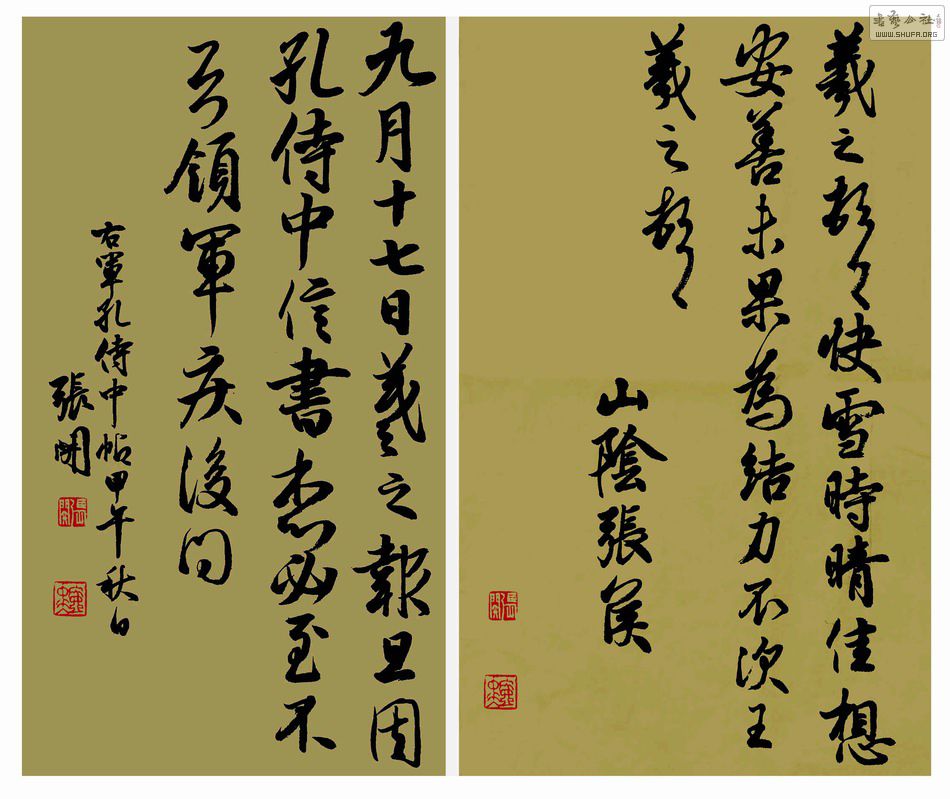 羲之頓首快雪時晴佳想
安善未果為結力不次王
羲之頓首
山陰張侯
九月十七日羲之報且因
孔侍中信書想必至不
知領軍疾後問
右軍孔侍中帖甲午秋日
張開
書藝公社
WWW.SHUFA.ORG